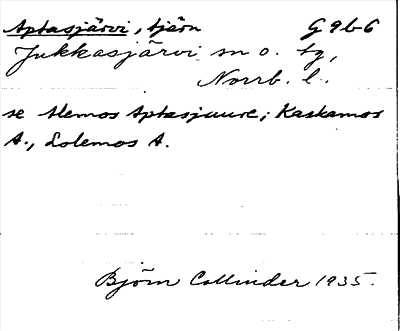 Aptasjärvi, tjärn G9b6
Jukkasjärvi sn o. tg,
Norrb. l.
se Alemos Aptasjaure; Kaskamos
A., Lolemos A.
Björn Collinder 1935.